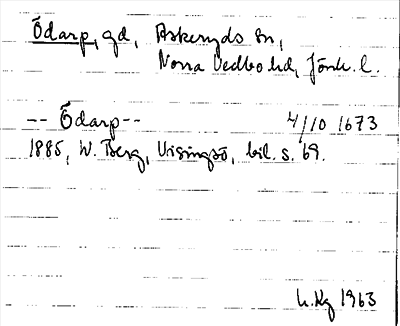 Ödarp, gd, Askeryds sn,
Norra Vedbo hd, Jönk. l.
-- Ödarp -- 4/10 1673
1885, W. Berg, Visingsö, bil. s. 69.
1963